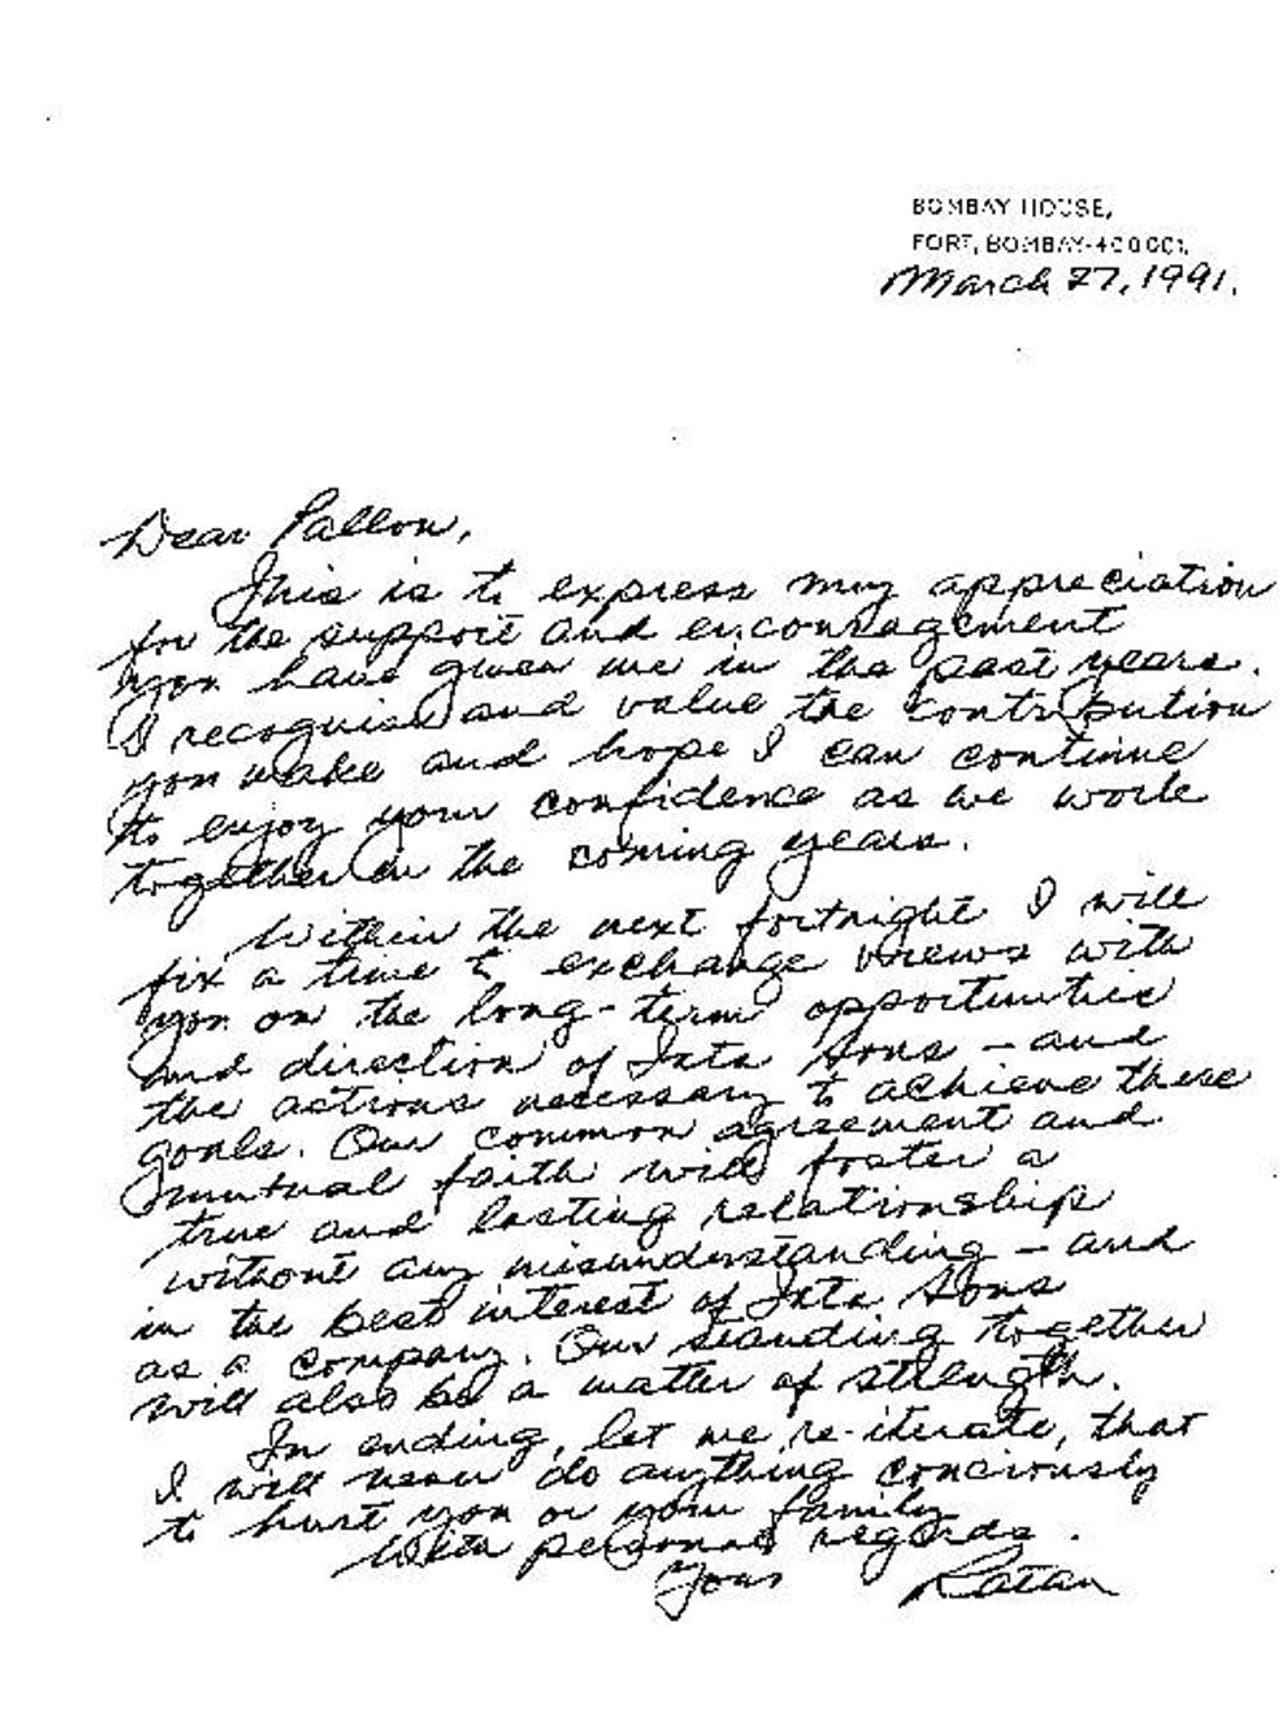 BOMBAY HOUSE,
FORT, BOMBAY-400 001.
March 27, 1991.
Dear Pallon,
This is to express my appreciation
for the support and encouragement
you have given me in the past years.
I recognise and value the contribution
you make and hope I can continue
to enjoy your confidence as we work
together in the coming years.
Within the next fortnight I will
fix a time to exchange views with
you on the long-term opportunities
and direction of Tata Sons - and
the actions necessary to achieve these
goals. Our common agreement and
mutual faith will foster a
true and lasting relationship
without any misunderstanding - and
in the best interest of Tata Sons
as a company. Our standing together
will also be a matter of strength.
In ending, let me re-iterate, that
I will never do anything conciously
to hurt you or your family
With personal regards.
Yours Ratan